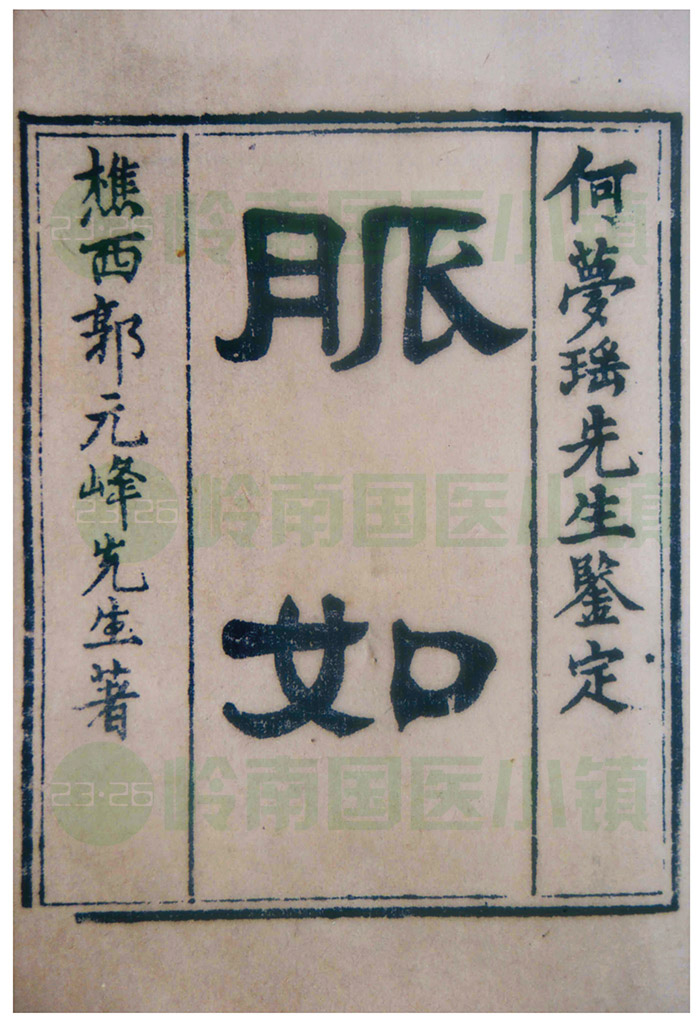 何夢瑶先生鑒定
脈如
樵西郭元峰先生著
23·26 岭南国医小镇
23·26 岭南国医小镇
23·26 岭南国医小镇